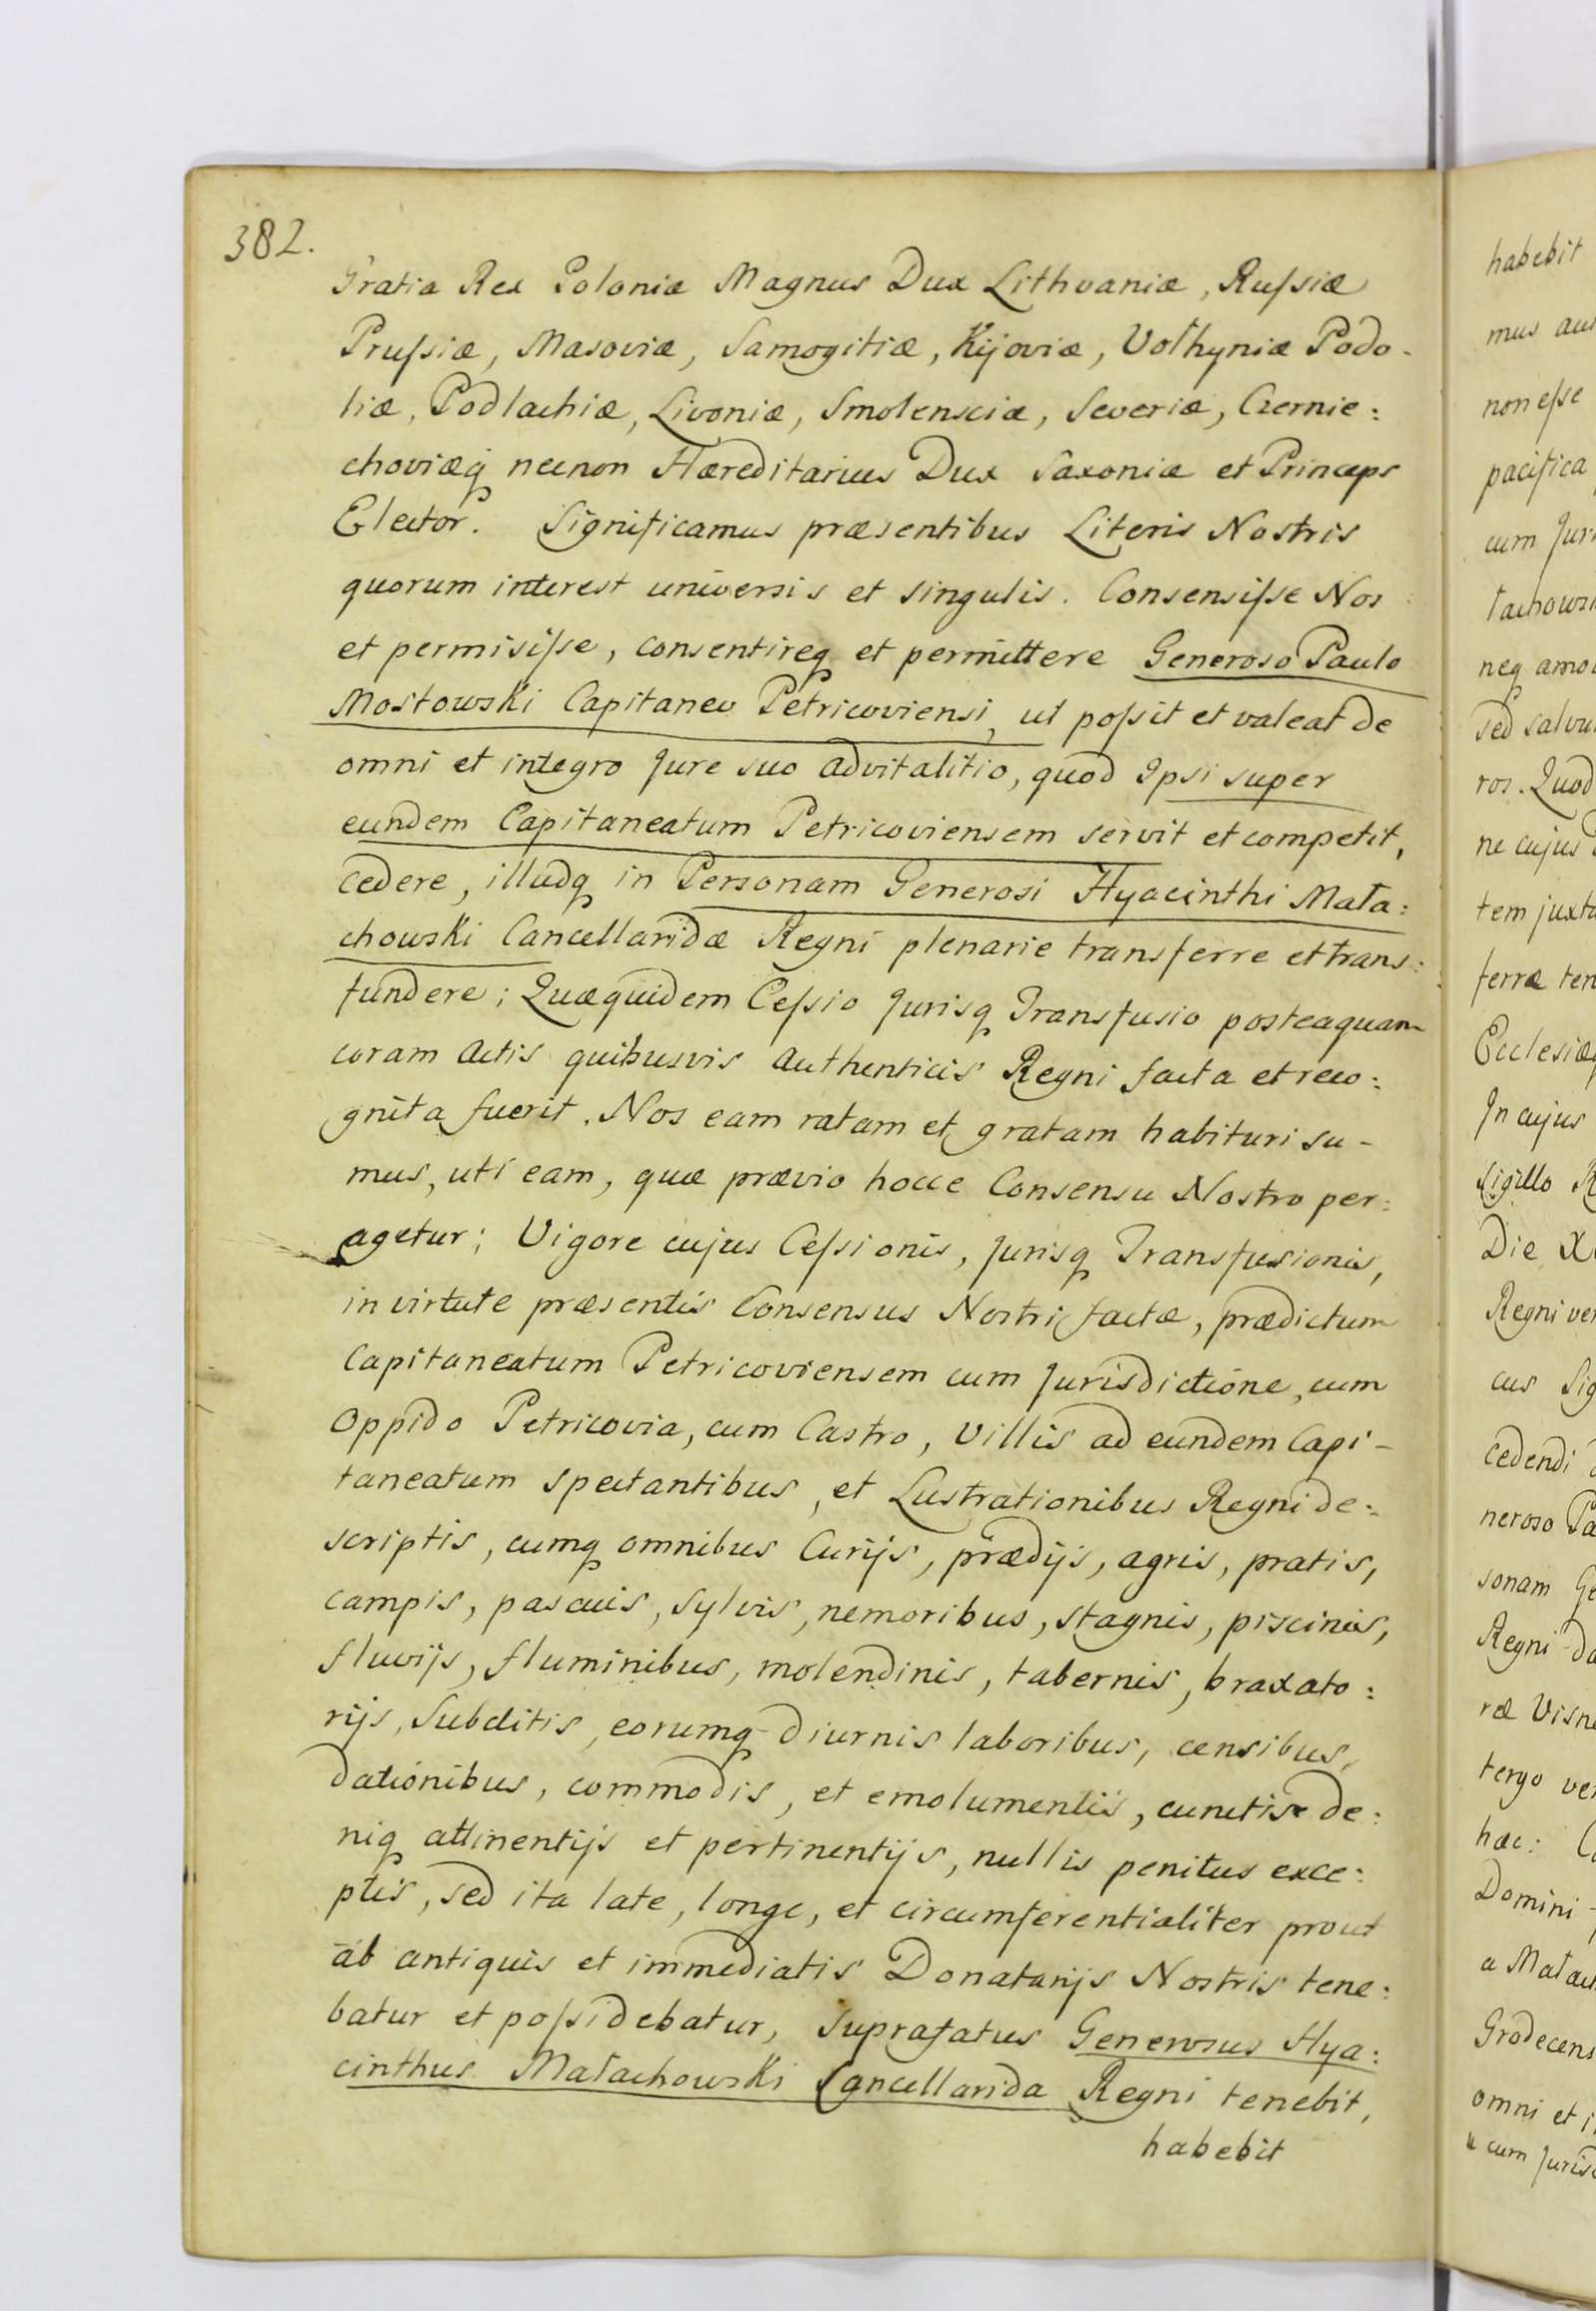 382.
Gratia Rex Poloniæ Magnus Dux Lithvaniæ, Rußiæ
Prußiæ, Masoviæ, Samogitiæ, Kijoviæ, Volhyniæ Podo-
liæ, Podlachiæ, Livoniæ, Smolensciæ, Severiæ, Czernie:
choviæq necnon Hæreditarius Dux Saxoniæ et Princeps
Elector. Significamus præsentibus Literis Nostris
quorum interest universis et singulis. Consensiße Nos
et permisiße, consentireq et permittere Generoso Paulo
Mostowski Capitaneo Petricoviensi, ut poßit et valeat de
omni et integro Jure suo advitalitio, quod Ipsi super
eundem Capitaneatum Petricoviensem servit et competit,
cedere, illudq in Personam Generosi Hyacinthi Mała:
chowski Cancellaridæ Regni plenarie transferre et trans:
fundere; Quæquidem Ceßio Jurisq Transfusio posteaquam
coram Actis quibusvis Authenticis Regni facta et reco:
gnita fuerit. Nos eam ratam et gratam habituri su-
mus, uti eam, quæ prævio hocce Consensu Nostro per:
agetur; Vigore cujus Ceßionis, Jurisq Transfusionis,
in virtute præsentis Consensus Nostri factæ, prædictum
Capitaneatum Petricoviensem cum Jurisdictione, cum
Oppido Petricovia, cum Castro, Villis ad eundem Capi-
taneatum spectantibus, et Lustrationibus Regni de:
scriptis, cumq omnibus Curijs, prædijs, agris, pratis,
campis, pascuis, sylvis, nemoribus, stagnis, piscinis,
fluvijs, fluminibus, molendinis, tabernis, braxato:
rijs, Subditis, eorumq diurnis laboribus, censibus,
dationibus, commodis, et emolumentis, cunctis de:
niq attinentijs et pertinentijs, nullis penitus exce:
ptis, sed ita late, longe, et circumferentialiter prout
ab antiquis et immediatis Donatarijs Nostris tene:
batur et poßidebatur, supra fatus Generosus Hya:
cinthus Małachowski Cancellarida Regni tenebit,
habebit
habebit
mus
non eße
pacifica
cum
neq
sed
ros. Quod
ne cujus
tem
terræ
In cujus
Sigillo
Die
Regni
cus
cedendi
neroso
sonam
Regni
ræ
tergo
hæc:
Domini
a
omni et
cum